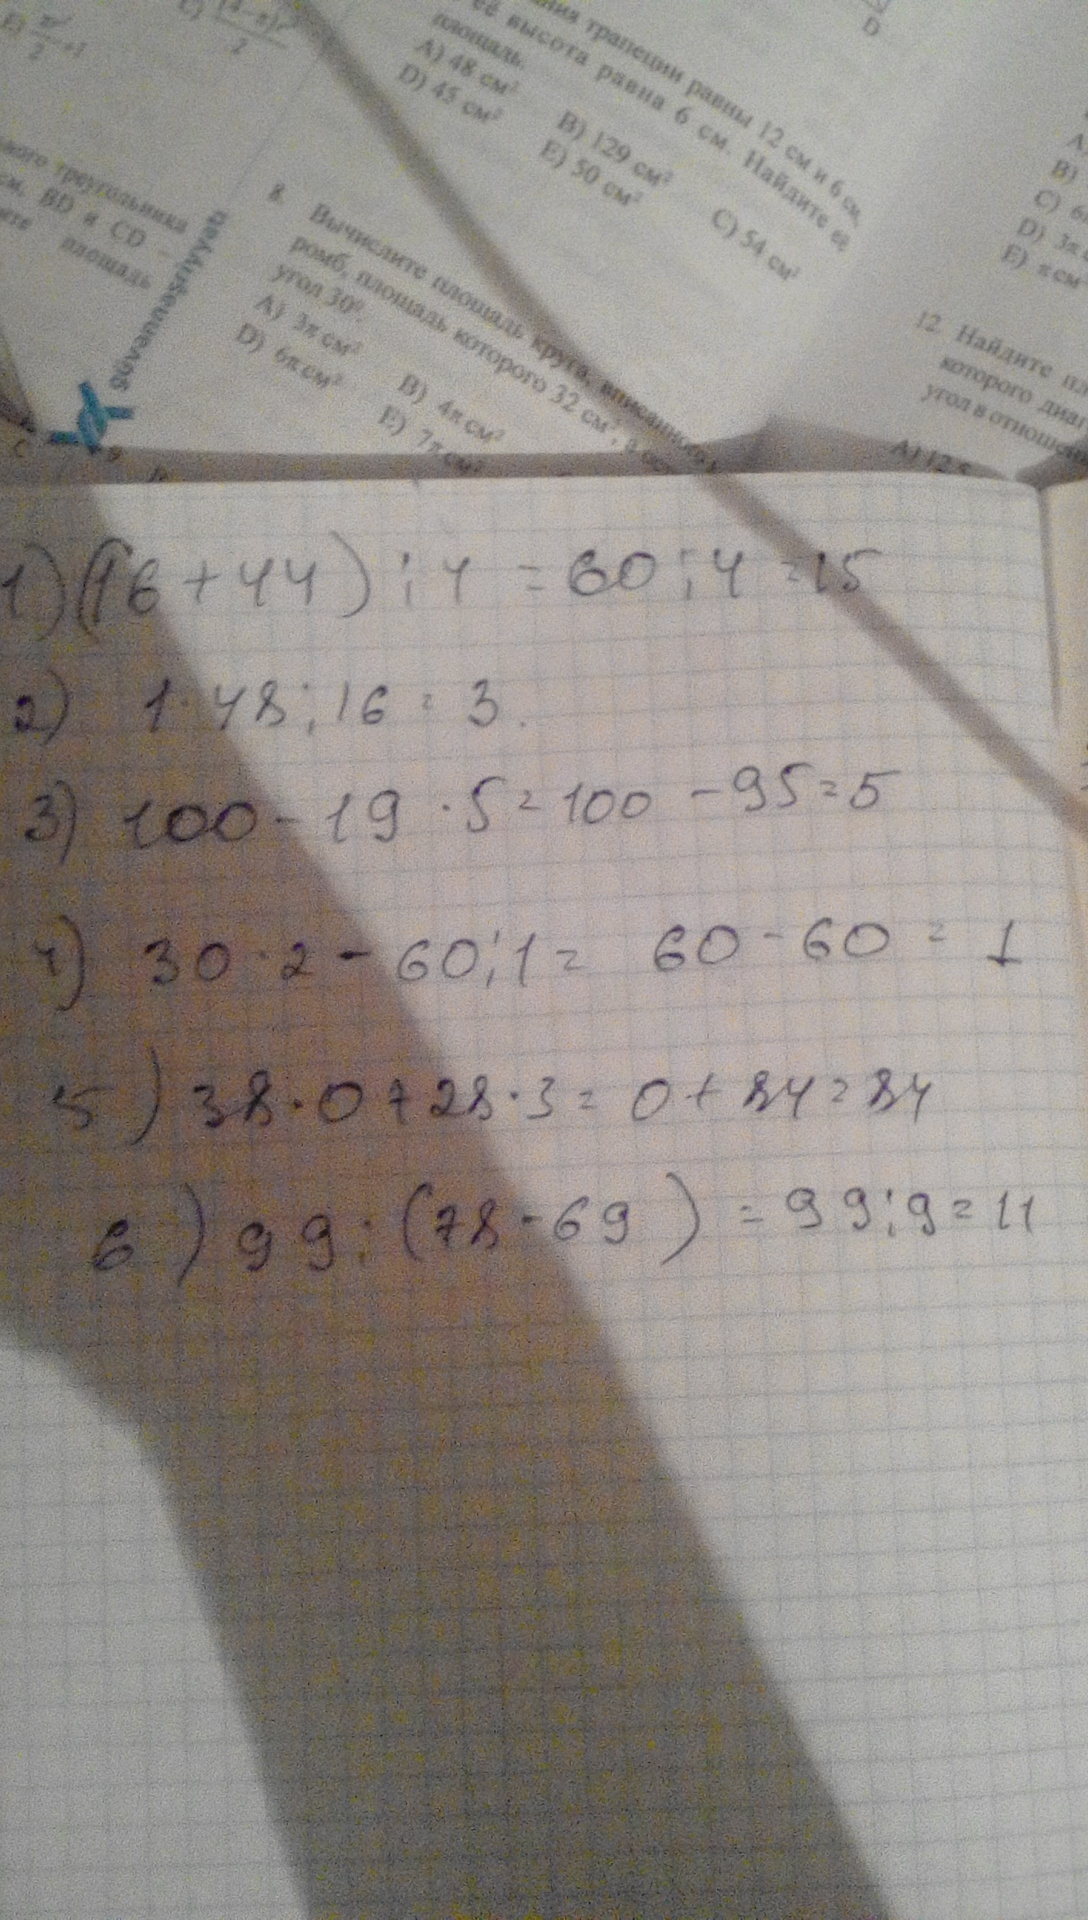 E) π²/2 +1
2
ания трапеции равны 12 см и 6 см,
её высота равна 6 см. Найдите её
площадь.
A) 48 см² B) 129 см² C) 54 см²
D) 45 см² E) 50 см²
D
треугольника
см. BD и CD –
площадь
güvənnəşriyyatı
8. Вычислите площадь круга, вписанного
ромб, площадь которого 32 см²,
угол 30⁰.
A) 3π см² B) 4π см²
D) 6π см² E) 7π см²
C
A.
B)
C) 6
D) 3π
E) π см
12. Найдите
которого диаг
угол в отношен
A) 12
1) (16+44) : 4 = 60 : 4 = 15
2) 1·48 : 16 = 3.
3) 100 - 19 · 5 = 100 - 95 = 5
4) 30 · 2 - 60 : 1 = 60 - 60 = 1
5) 38 · 0 + 28 · 3 = 0 + 84 = 84
6) 99 : (78 - 69) = 99 : 9 = 11